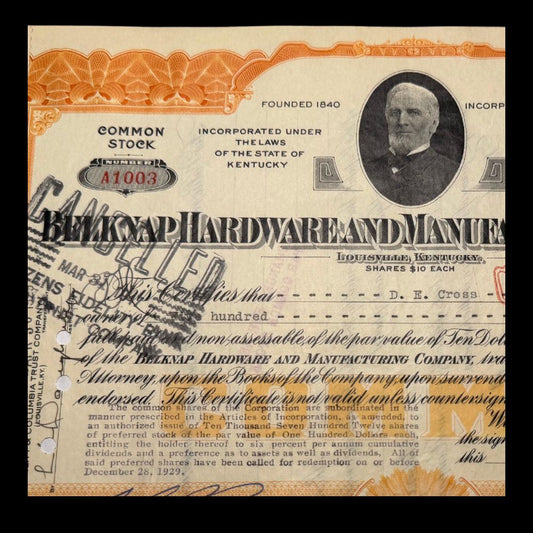 FOUNDED 1840 INCORP
COMMON
STOCK
NUMBER
A1003
INCORPORATED UNDER
THE LAWS
OF THE STATE OF
KENTUCKY
CANCELLED
MAR
BELKNAP HARDWARE AND MANUFA
LOUISVILLE, KENTUCKY.
SHARES $10 EACH
This Certifies that D. E. Cross
owner of hundred
full paid and non-assessable, of the par value of Ten Dol
of the BELKNAP HARDWARE AND MANUFACTURING COMPANY, tra
Attorney, upon the Books of the Company, upon surrend
endorsed. This Certificate is not valid unless countersign
The common shares of the Corporation are subordinated in the
manner prescribed in the Articles of Incorporation, as amended, to
an authorized issue of Ten Thousand Seven Hundred Twenty shares
of preferred stock of the par value of One Hundred Dollars each,
entitling the holder thereof to six per cent per annum cumulative
dividends and a preference as to assets as well as dividends. All of
said preferred shares have been called for redemption on or before
December 28, 1929.
"W
the sig
this
& COLUMBIA TRUST COMPANY
(LOUISVILLE, KY.)